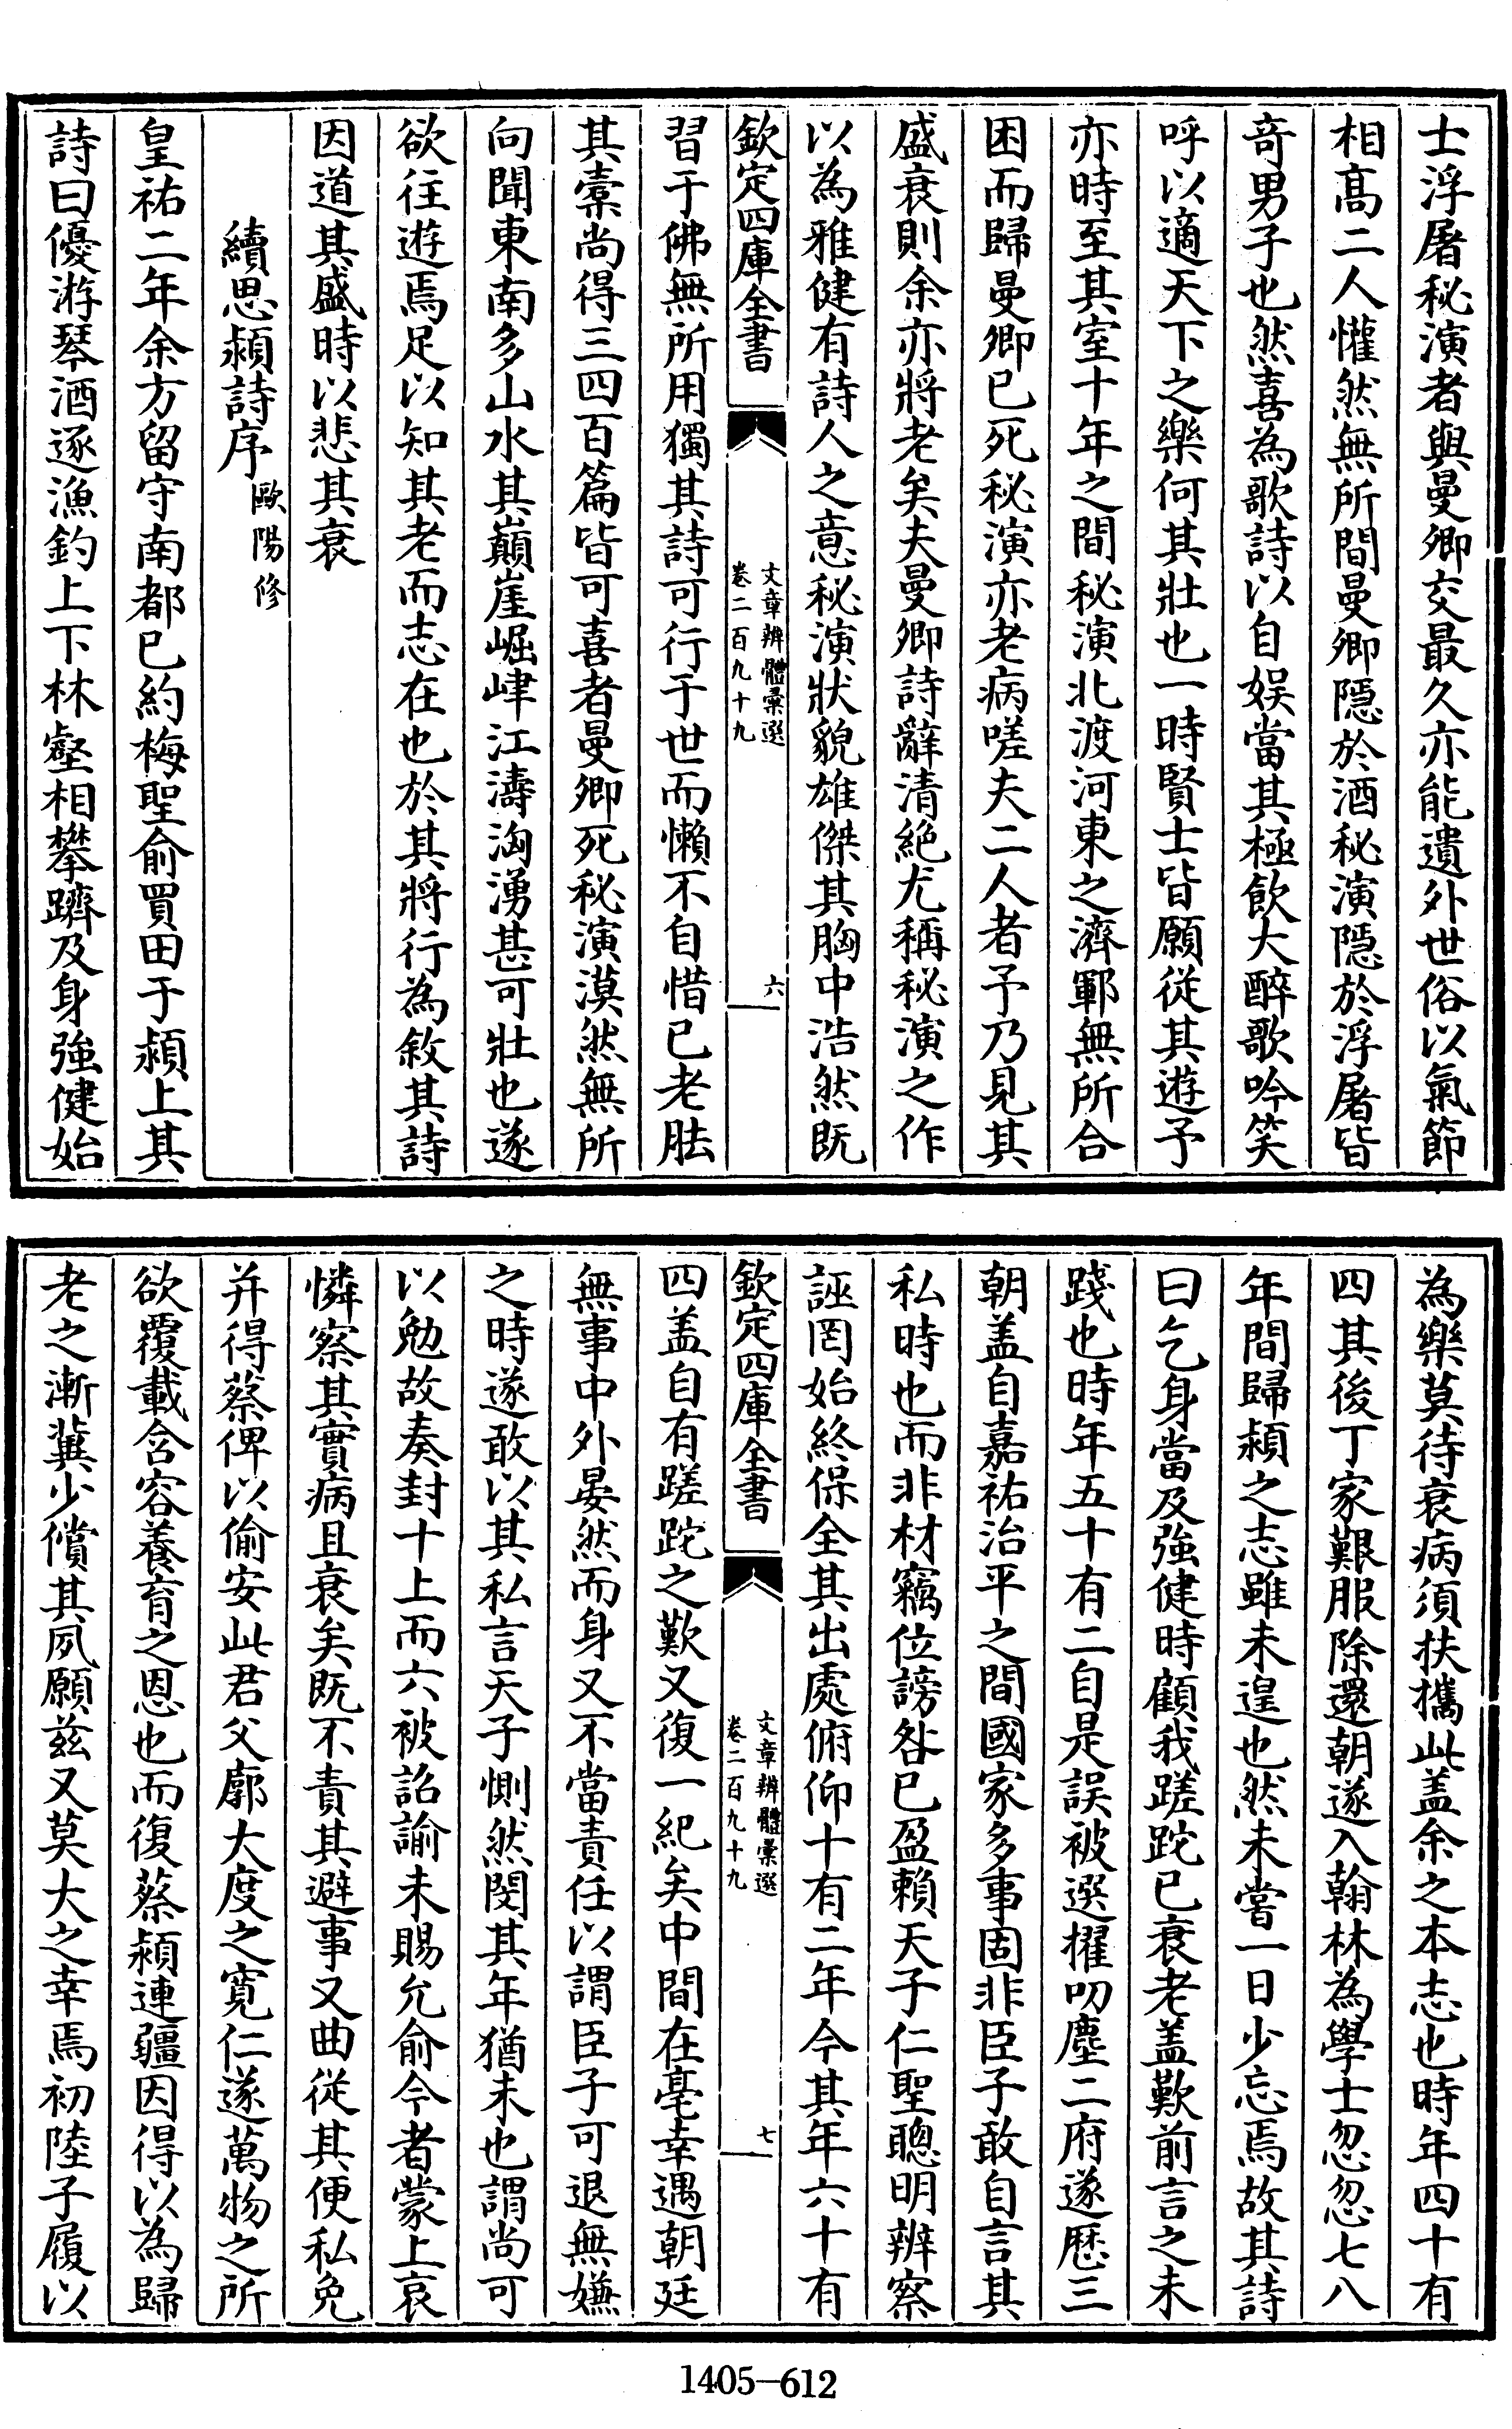 士浮屠秘演者與曼卿交最久亦能遺外世俗以氣節
相髙二人懽然無所間曼卿隱於酒秘演隱於浮屠皆
奇男子也然喜為歌詩以自娱當其極飲大醉歌吟笑
呼以適天下之樂何其壯也一時賢士皆願從其遊予
亦時至其室十年之間秘演北渡河東之濟鄆無所合
困而歸曼卿已死秘演亦老病嗟夫二人者予乃見其
盛衰則余亦將老矣夫曼卿詩辭清絶尤稱秘演之作
以為雅健有詩人之意秘演狀貌雄傑其胸中浩然既
欽定四庫全書
文章辨體彙選
卷二百九十九
六
習于佛無所用獨其詩可行于世而懶不自惜已老胠
其橐尚得三四百篇皆可喜者曼卿死秘演漠然無所
向聞東南多山水其巔崖崛峍江濤洶湧甚可壯也遂
欲往遊焉足以知其老而志在也於其將行為敘其詩
因道其盛時以悲其衰
續思潁詩序 歐陽修
皇祐二年余方留守南都已約梅聖俞買田于潁上其
詩曰優游琴酒逐漁釣上下林壑相攀躋及身強健始
為樂莫待衰病須扶攜此盖余之本志也時年四十有
四其後丁家艱服除還朝遂入翰林為學士忽忽七八
年間歸潁之志雖未遑也然未嘗一日少忘焉故其詩
曰乞身當及強健時顧我蹉跎已衰老盖歎前言之未
踐也時年五十有二自是誤被選擢叨塵二府遂歴三
朝盖自嘉祐治平之間國家多事固非臣子敢自言其
私時也而非材竊位謗咎已盈賴天子仁聖聰明辨察
誣罔始終保全其出處俯仰十有二年今其年六十有
欽定四庫全書
文章辨體彙選
卷二百九十九
七
四盖自有蹉跎之歎又復一紀矣中間在亳幸遇朝廷
無事中外晏然而身又不當責任以謂臣子可退無嫌
之時遂敢以其私言天子惻然閔其年猶未也謂尚可
以勉故奏封十上而六被詔諭未賜允俞今者蒙上哀
憐察其實病且衰矣既不責其避事又曲從其便私免
并得蔡俾以偷安此君父廓大度之寬仁遂萬物之所
欲覆載含容養育之恩也而復蔡潁連疆因得以為歸
老之漸冀少償其夙願兹又莫大之幸焉初陸子履以
1405-612